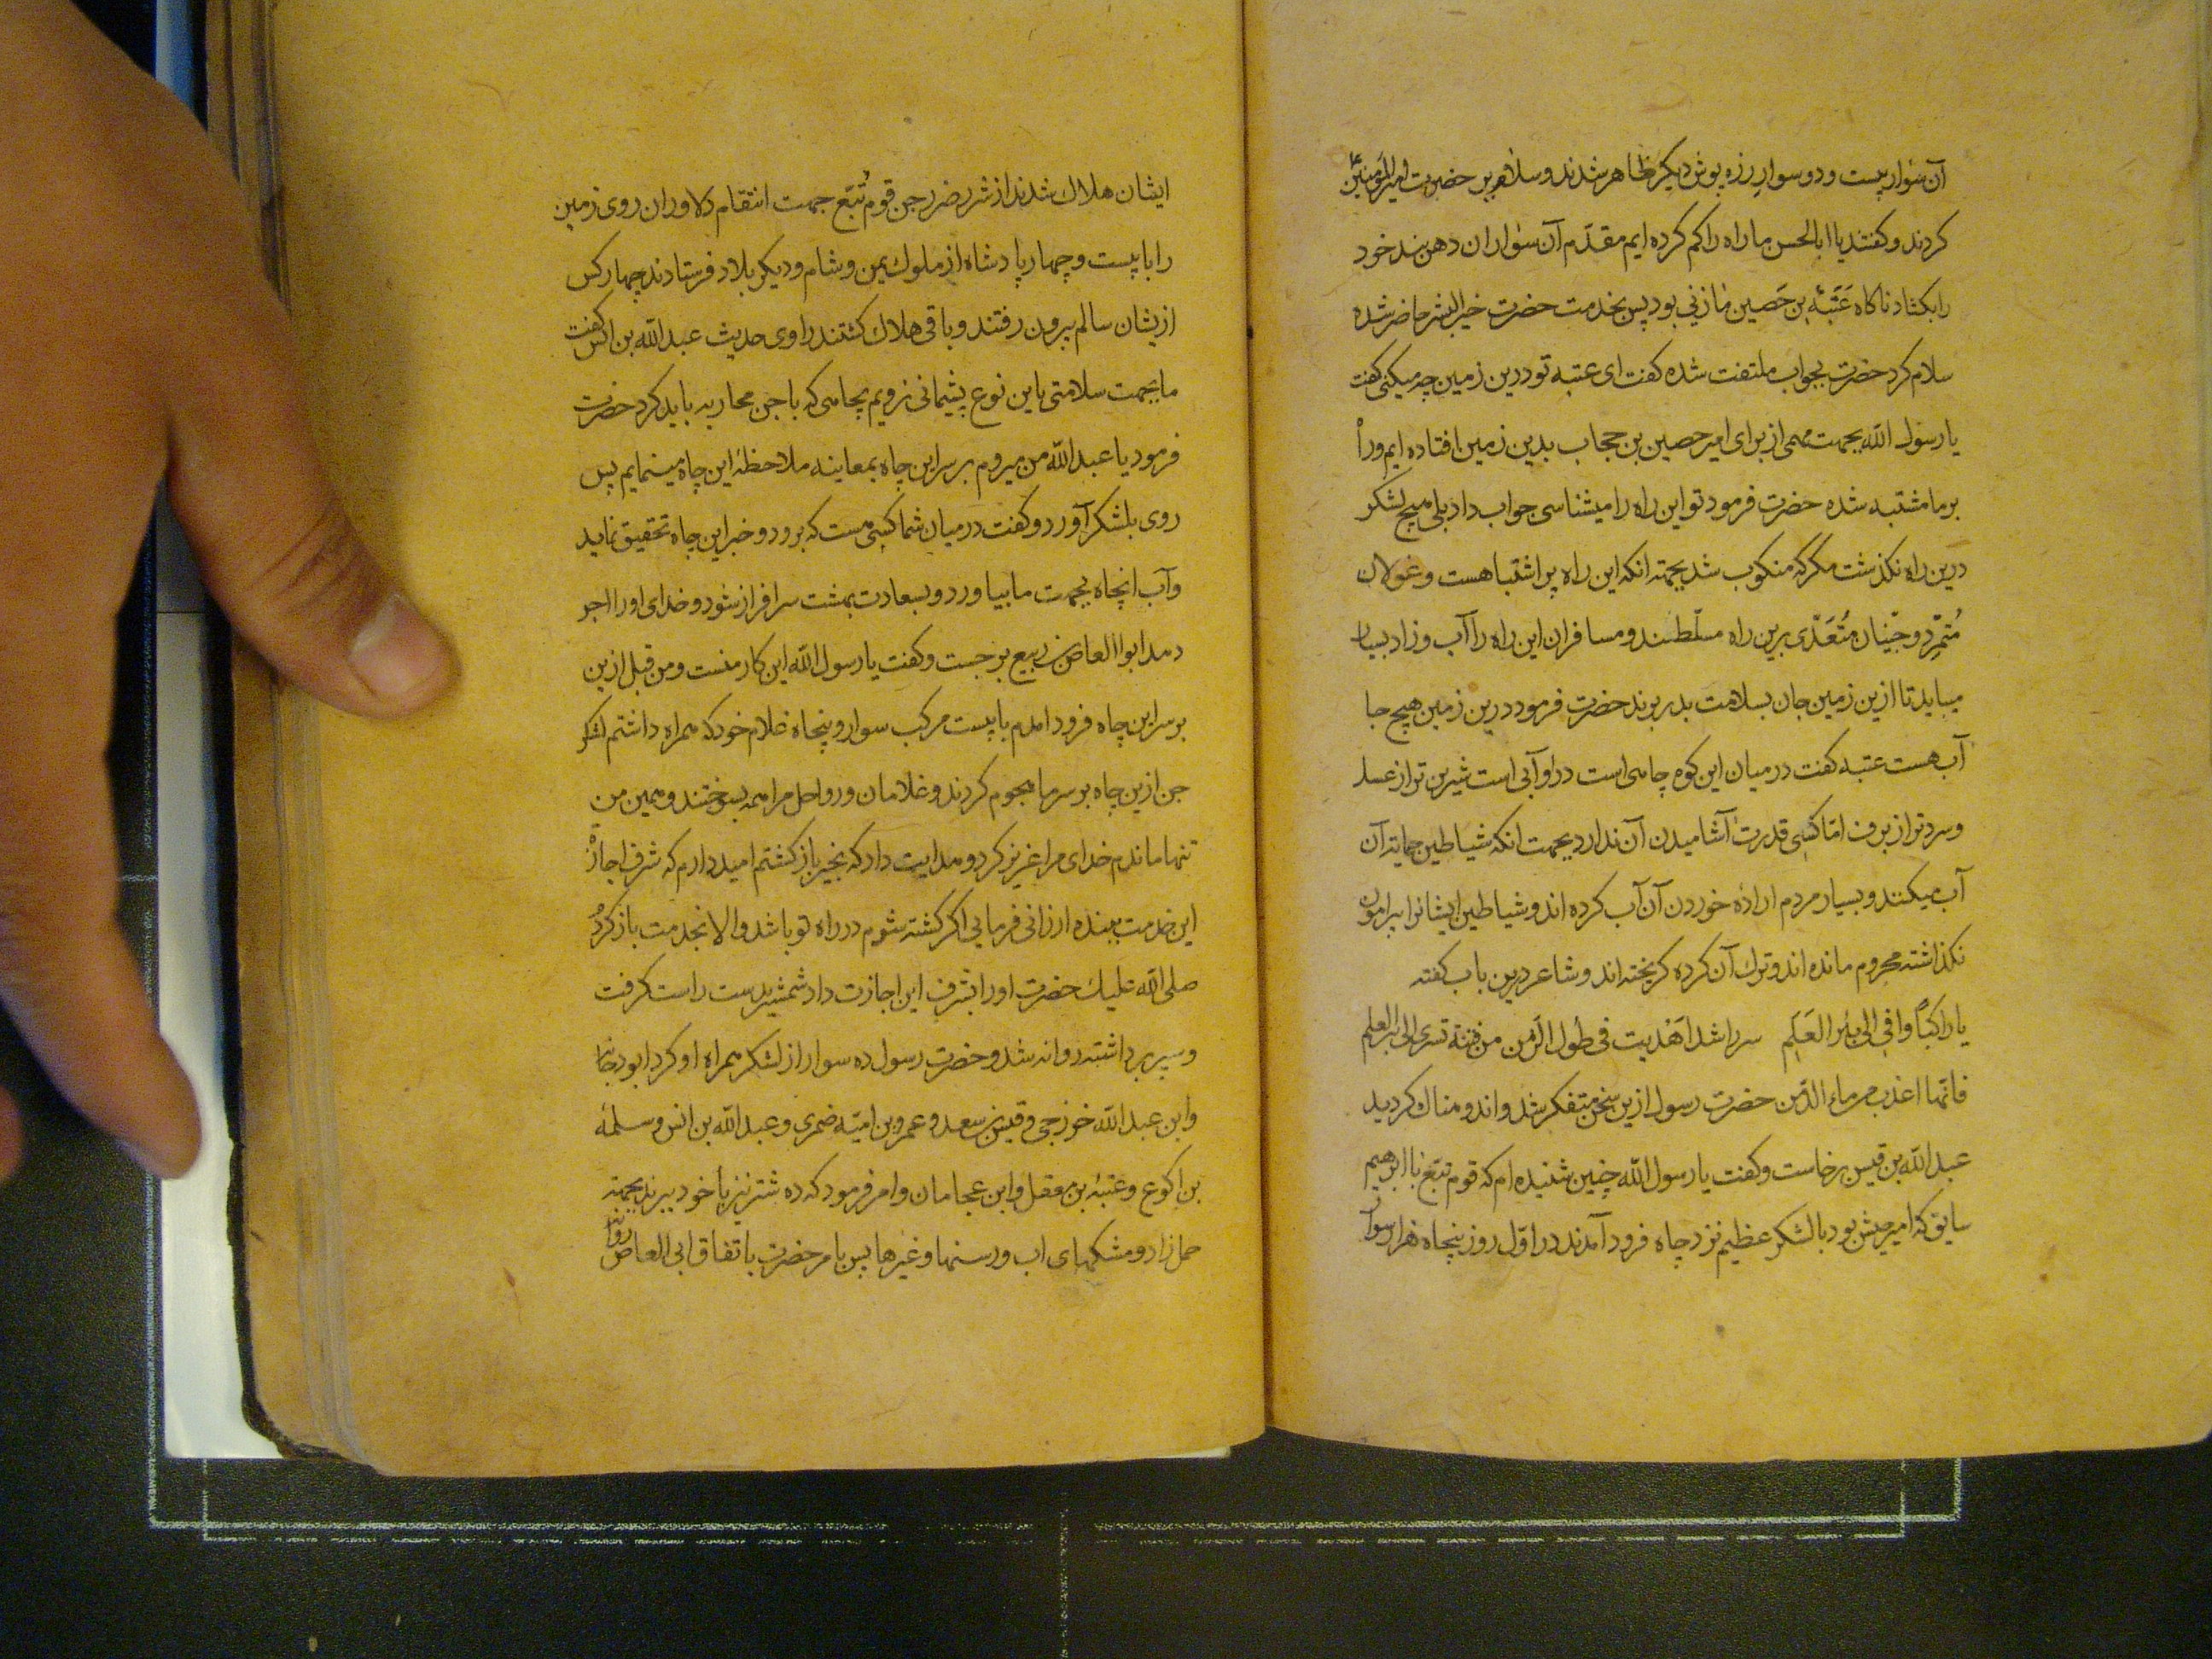 آن سوار بیست و دو سوار زره پوش دیکر ظاهر شدند و سلام بر حضرت امیرالمؤمنین
کردند و کفتند یا ابا الحسن ما راه را کم کرده ایم مقدّم آن سواران دهن بند خود
را بکشاد ناکاه عَتَبَه بن حَصین مازنی بود پس بخدمت حضرت خیر البشر حاضر شده
سلام کرد حضرت بجواب ملتفت شده کفت ای عتبه تو درین زمین چه میکنی کفت
یا رسول الله بجهت مهمی از برای امیر حصین بن حجاب بدین زمین افتاده ایم و راه
بر ما مشتبه شده حضرت فرمود تو این راه را میشناسی جواب داد بلی هیچ لشکر
درین راه نکذشت مکر که منکوب شد بجهته انکه این راه پر اشتباهست و غولان
مُتمرّد و جنّیان مُتَعَدّی برین راه مسلّطند و مسافران این راه را آب و زاد بسیار
میباید تا ازین زمین جان بسلامت بدر برند حضرت فرمود درین زمین هیچ جا
آب هست عتبه کفت در میان این کوه چاهی است در او آبی است شیرین تر از عسل
و سرد تر از برف امّا کسی قدرت آشامیدن آن ندارد بجهت انکه شیاطین حمایته آن
آب میکنند و بسیار مردم ارادهٔ خوردن آن آب کرده اند و شیاطین ایشانرا پیرامون
نکذاشته محروم مانده اند و ترك آن کرده کریخته اند و شاعر درین باب کفته
یا راکباً وافی الی بئر العَلَمِ سر راشداً هَدیت فی طُول الزمن من فتنة تسری الی بئر العلم
فانّها اعذب من ماء الدّمن حضرت رسول ازین سخن متفکر شد و اندوهناك کردید
عبد الله بن قیس برخاست و کفت یا رسول الله چنین شنیده ام که قوم تبّع با ابرهیم
سابق که امیر جیش بود با لشکر عظیم نزد چاه فرود آمدند در اوّل روز پنجاه هزار سوار
ایشان هلاك شدند از شر و ضرر جن قوم تُبّع جهت انتقام دلاوران روی زمین
را با بیست و چهار پادشاه از ملوك یمن و شام و دیکر بلاد فرستادند چهار کس
ازیشان سالم بیرون رفتند و باقی هلاك کشتند راوی حدیث عبد الله بن انس کفت
ما بجهت سلامتی باین نوع پشیمانی نرویم بچاهی که با جن محاربه باید کرد حضرت
فرمود یا عبد الله من میروم بر سر این چاه بمعاینه ملاحظهٔ این چاه مینمایم پس
روی بلشکر آورد و کفت در میان شما کسی هست که برود و خبر این چاه تحقیق نماید
و آب انچاه بجهت ما بیاورد و بسعادت بهشت سرافراز شود و خدای او را اجر
دهد ابو العاص بن ربیع برجست و کفت یا رسول الله این کار منست و من قبل ازین
بر سر این چاه فرود امدم با بیست مرکب سوار و پنجاه غلام خود که همراه داشتم لشکر
جن ازین چاه بر سر ما هجوم کردند و غلامان و رواحل مرا همه بسوختند و همین من
تنها ماندم خدای مرا عزیز کرد و هدایت داد که بخیر باز کشتم امید دارم که شرف اجازهٔ
این خدمت ببنده ارزانی فرمایی اکر کشته شوم در راه تو باشد و الا بخدمت باز کردم
صلی الله علیك حضرت او را بشرف این اجازت داد شمشیر بدست راست کرفت
و سپر برداشته روانه شد و حضرت رسول ده سوار از لشکر همراه او کرد ابو دجانه
و ابن عبد الله خزرجی و قیس بن سعد و عمرو بن امیّه ضمری و عبد الله بن انس و سلمهٔ
بن اکوع و عتبهٔ بن معقل و ابن عجامان و امر فرمود که ده شتر نیز با خود ببرند بجهته
حمل زاد و مشکهای اب و رسنها و غیرها پس بامر حضرت باتفاق ابی العاص روان